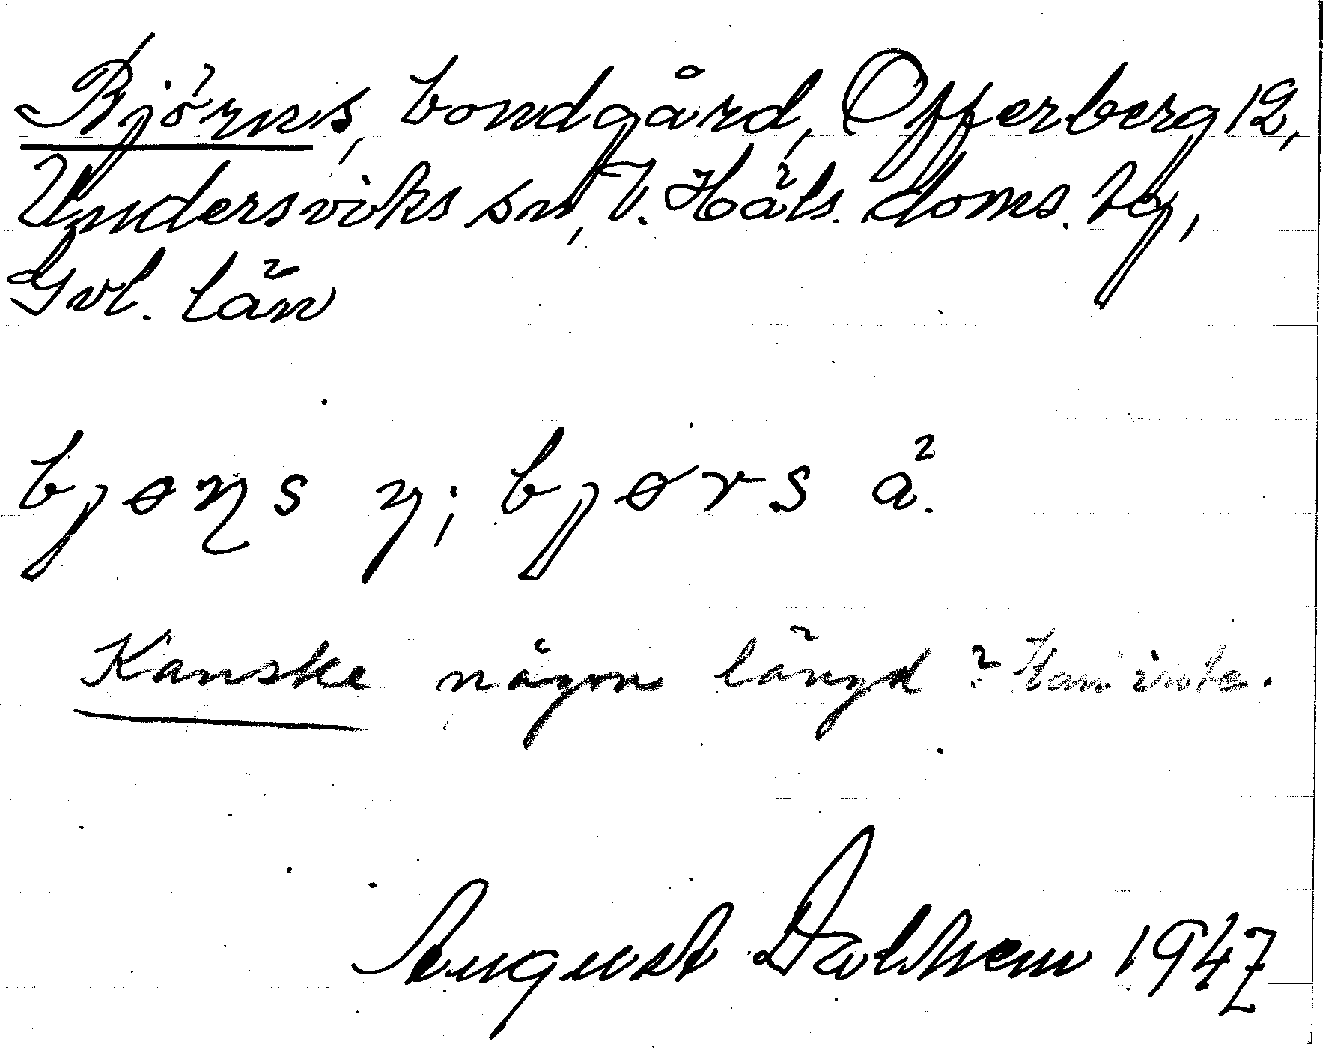 Björns, bondgård, Offerberg 12,
Undersviks sn, V. Häls. doms. bg,
Gvl. län
bjøɳs y; bjørs ä.
Kanske någon längd?
August Dalhem 1947